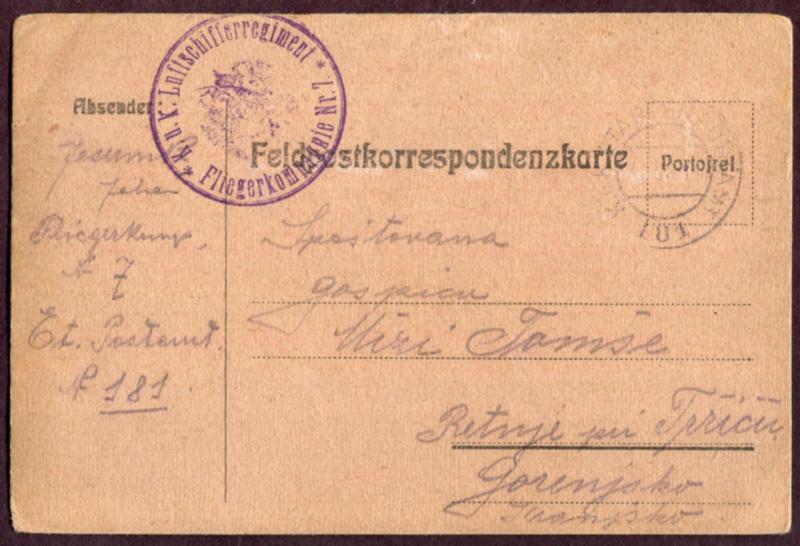 * K. u. K. Luftschifferregiment *
Fliegerkompagnie Nr. 7
Absender
Feldpostkorrespondenzkarte
Portofrei.
Fliegerkomp.
N 7
Et. Postamt
N 181
Spoštovana
gospica
Mizi Tomše
Retnje pri Tržiču
Gorenjsko
Kranjsko
181